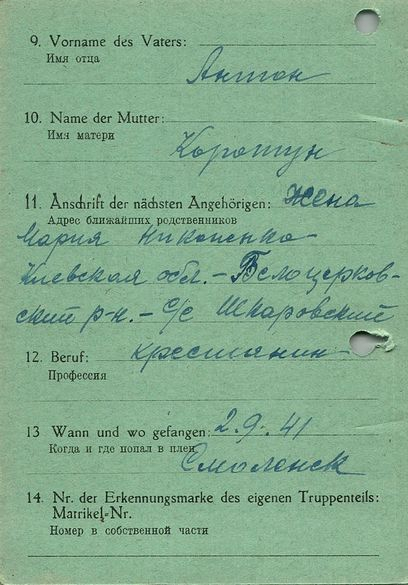 9. Vorname des Vaters:
Имя отца
Антон
10. Name der Mutter:
Имя матери
Коротун
11. Anschrift der nächsten Angehörigen: Жена
Адрес ближайших родственников
Мария Никоненко
Киевская обл. - Белоцерков-
ский р-н. - с/с Шкаровский
12. Beruf: крестьянин
Профессия
13 Wann und wo gefangen: 2.9.41
Когда и где попал в плен
Смоленск
14. Nr. der Erkennungsmarke des eigenen Truppenteils:
Matrikel-Nr.
Номер в собственной части